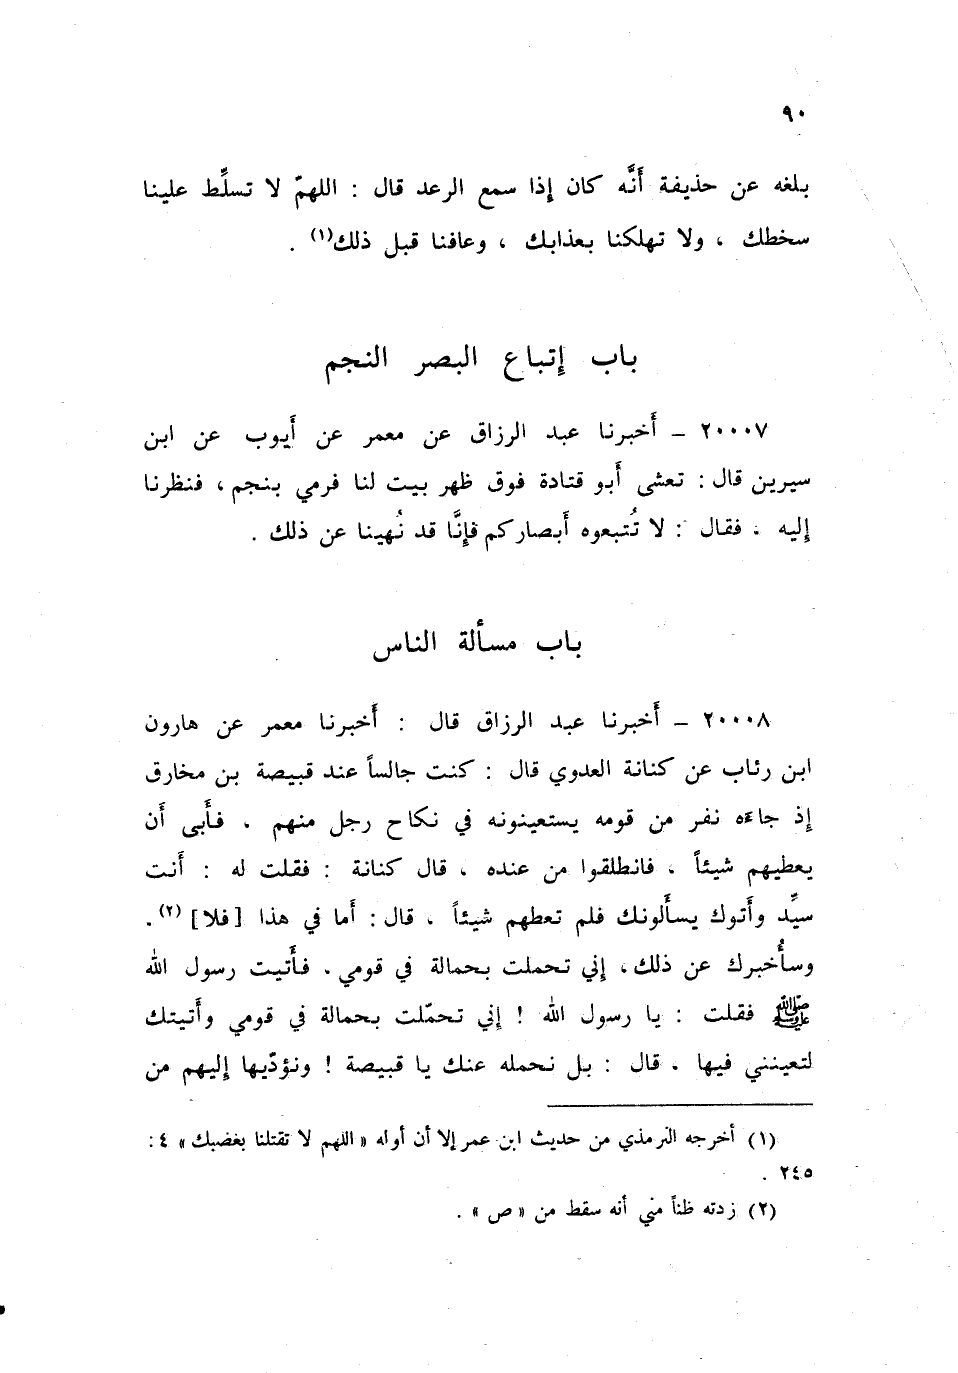 ٩٠
بلغه عن حذيفة أَنَّه كان إذا سمع الرعد قال : اللهمّ لا تسلِّط علينا
سخطك ، ولا تهلكنا بعذابك ، وعافنا قبل ذلك(١) .
باب إتباع البصر النجم
٢٠٠٠٧ – أَخبرنا عبد الرزاق عن معمر عن أَيوب عن ابن
سيرين قال : تعشى أَبو قتادة فوق ظهر بيت لنا فرمي بنجم ، فنظرنا
إليه ، فقال : لا تُتبعوه أَبصاركم فإنَّا قد نُهينا عن ذلك .
باب مسأَلة الناس
٢٠٠٠٨ – أَخبرنا عبد الرزاق قال : أَخبرنا معمر عن هارون
ابن رئاب عن كنانة العدوي قال : كنت جالساً عند قبيصة بن مخارق
إذ جاءه نفر من قومه يستعينونه في نكاح رجل منهم ، فأَبى أَن
يعطيهم شيئاً ، فانطلقوا من عنده ، قال كنانة : فقلت له : أَنت
سيِّد وأَتوك يسأَلونك فلم تعطهم شيئاً ، قال : أَما في هذا [فلا] (٢) .
وسأُخبرك عن ذلك، إني تحملت بحمالة في قومي ، فأَتيت رسول الله
ﷺ فقلت : يا رسول الله ! إني تحمّلت بحمالة في قومي وأَتيتك
لتعينني فيها ، قال : بل نحمله عنك يا قبيصة ! ونؤدّيها إليهم من
(١) أخرجه الترمذي من حديث ابن عمر إلا أن أوله « اللهم لا تقتلنا بغضبك » ٤ :
٢٤٥ .
(٢) زدته ظناً مني أنه سقط من « ص » .